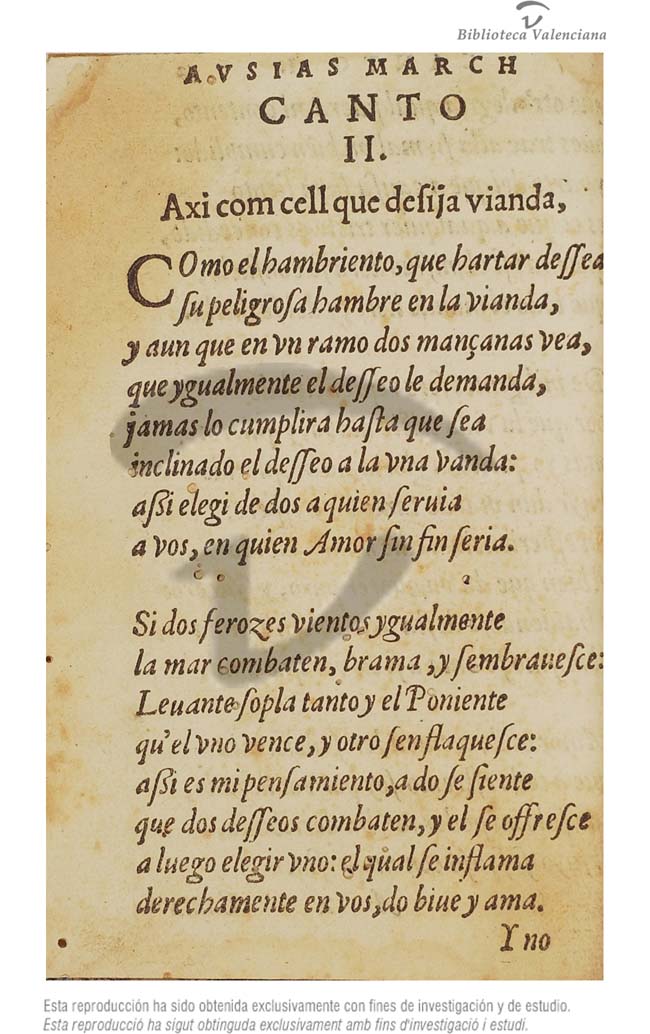 Biblioteca Valenciana
AVSIAS MARCH
CANTO
II.
Axi com cell que deſija vianda,
COmo el hambriento, que hartar deſſea
ſu peligroſa hambre en la vianda,
y aun que en vn ramo dos mançanas vea,
que ygualmente el deſſeo le demanda,
jamas lo cumplira haſta que ſea
inclinado el deſſeo a la vna vanda:
aſsi elegi de dos a quien ſeruia
a vos, en quien Amor ſin fin ſeria.
Si dos ferozes vientos ygualmente
la mar combaten, brama, y ſembraueſce:
Leuante ſopla tanto y el Poniente
qu'el vno vence, y otro ſenflaqueſce:
aſsi es mi penſamiento, a do ſe ſiente
que dos deſſeos combaten, y el ſe offreſce
a luego elegir vno: el qual ſe inflama
derechamente en vos, do biue y ama.
Y no
Esta reproducción ha sido obtenida exclusivamente con fines de investigación y de estudio.
Esta reproducció ha sigut obtinguda exclusivament amb fins d'investigació i estudi.